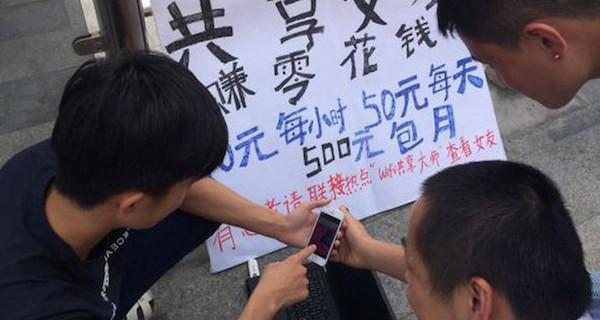 共享女
赚零花钱
元每小时50元每天
500元包月
有意者请联接热点"Wifi共享大师"查看女友